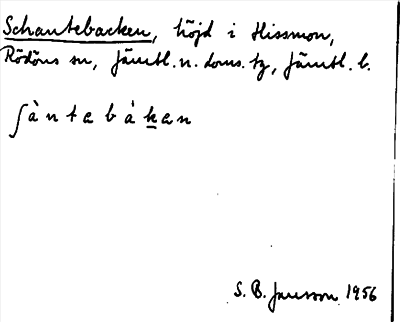 Schantebacken, höjd i Hissmon,
Rödöns sn, Jämtl. n. doms. tg, Jämtl. l.
ʃàntebáken
S. B. Jansson 1956